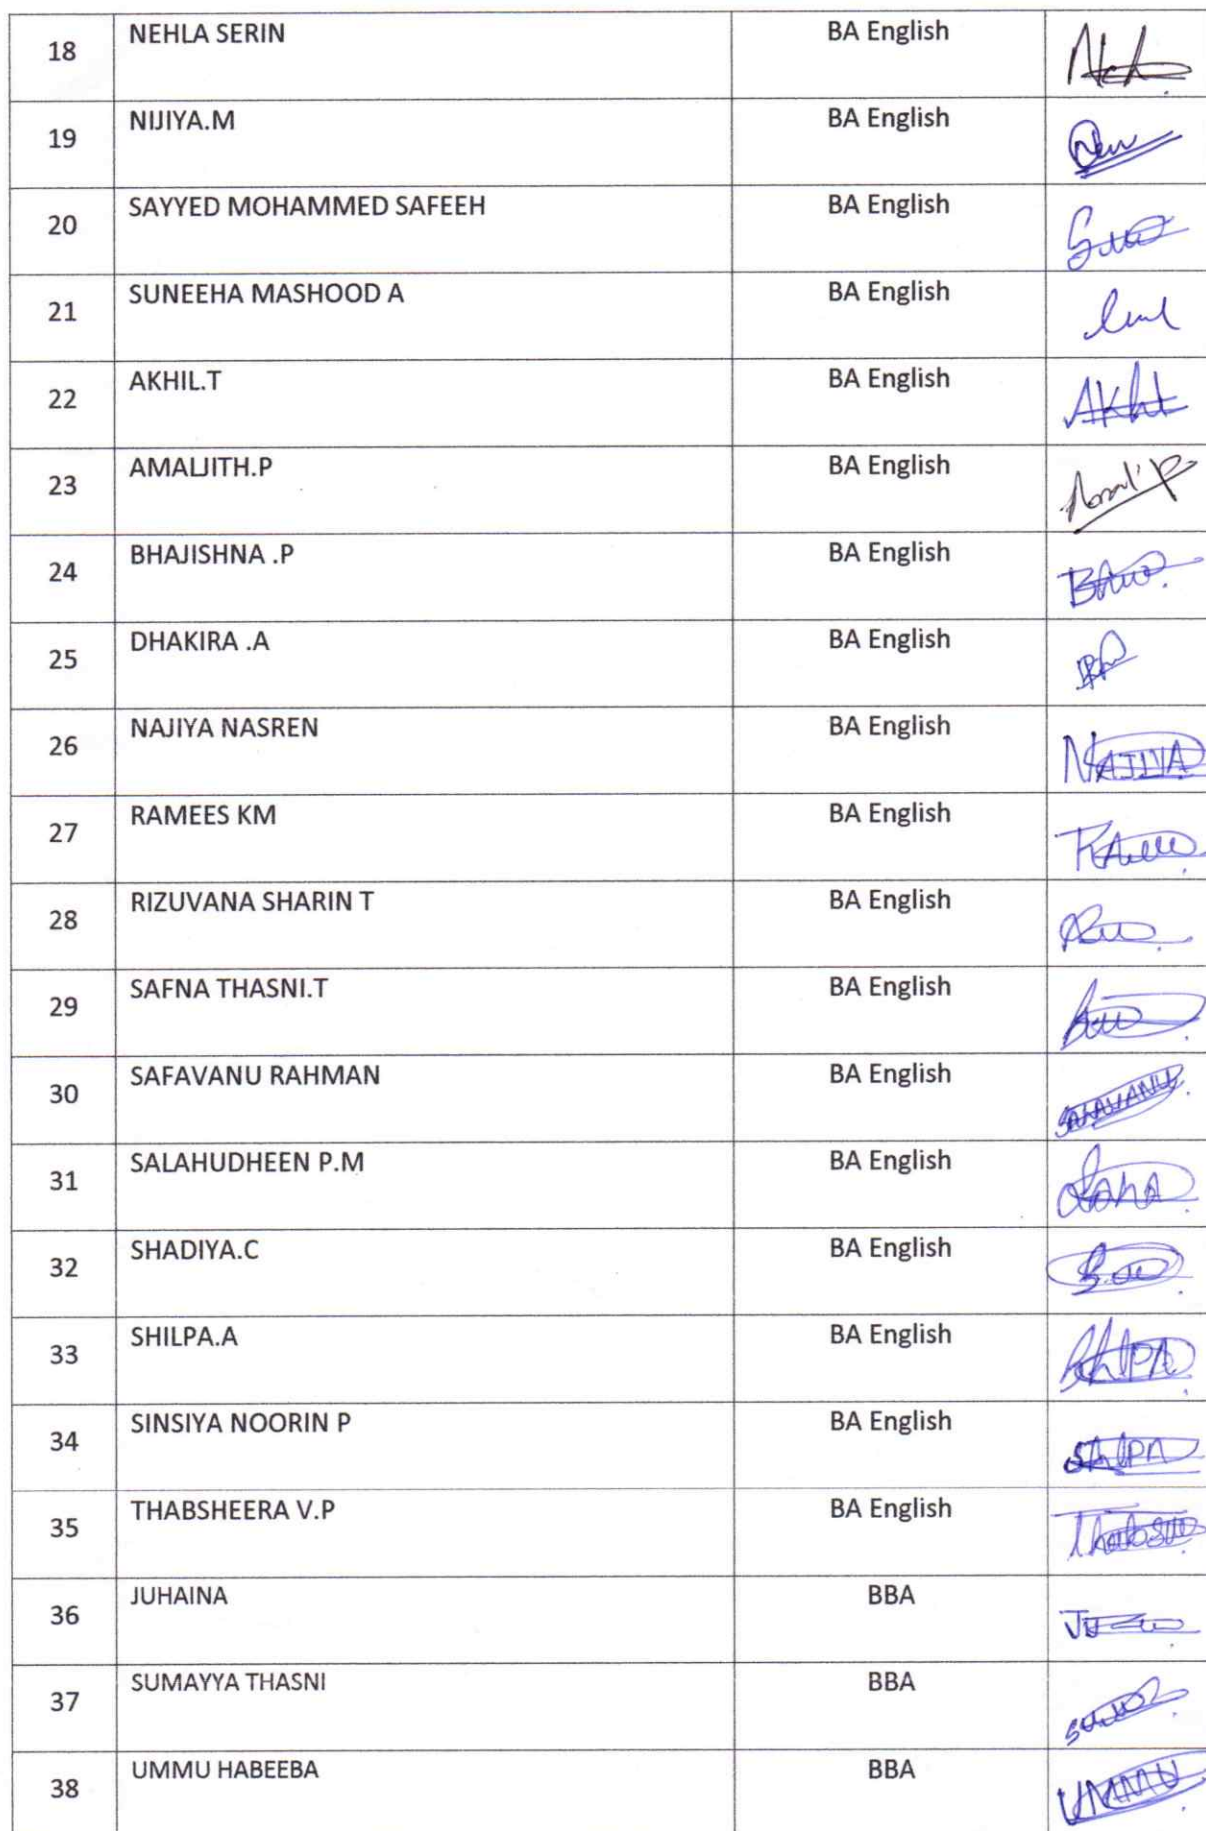 18 NEHLA SERIN BA English
19 NIJIYA.M BA English
20 SAYYED MOHAMMED SAFEEH BA English
21 SUNEEHA MASHOOD A BA English
22 AKHIL.T BA English
23 AMALJITH.P BA English
24 BHAJISHNA .P BA English
25 DHAKIRA .A BA English
26 NAJIYA NASREN BA English NAJIYA
27 RAMEES KM BA English
28 RIZUVANA SHARIN T BA English
29 SAFNA THASNI.T BA English
30 SAFAVANU RAHMAN BA English
31 SALAHUDHEEN P.M BA English
32 SHADIYA.C BA English
33 SHILPA.A BA English
34 SINSIYA NOORIN P BA English
35 THABSHEERA V.P BA English
36 JUHAINA BBA
37 SUMAYYA THASNI BBA
38 UMMU HABEEBA BBA UMMU